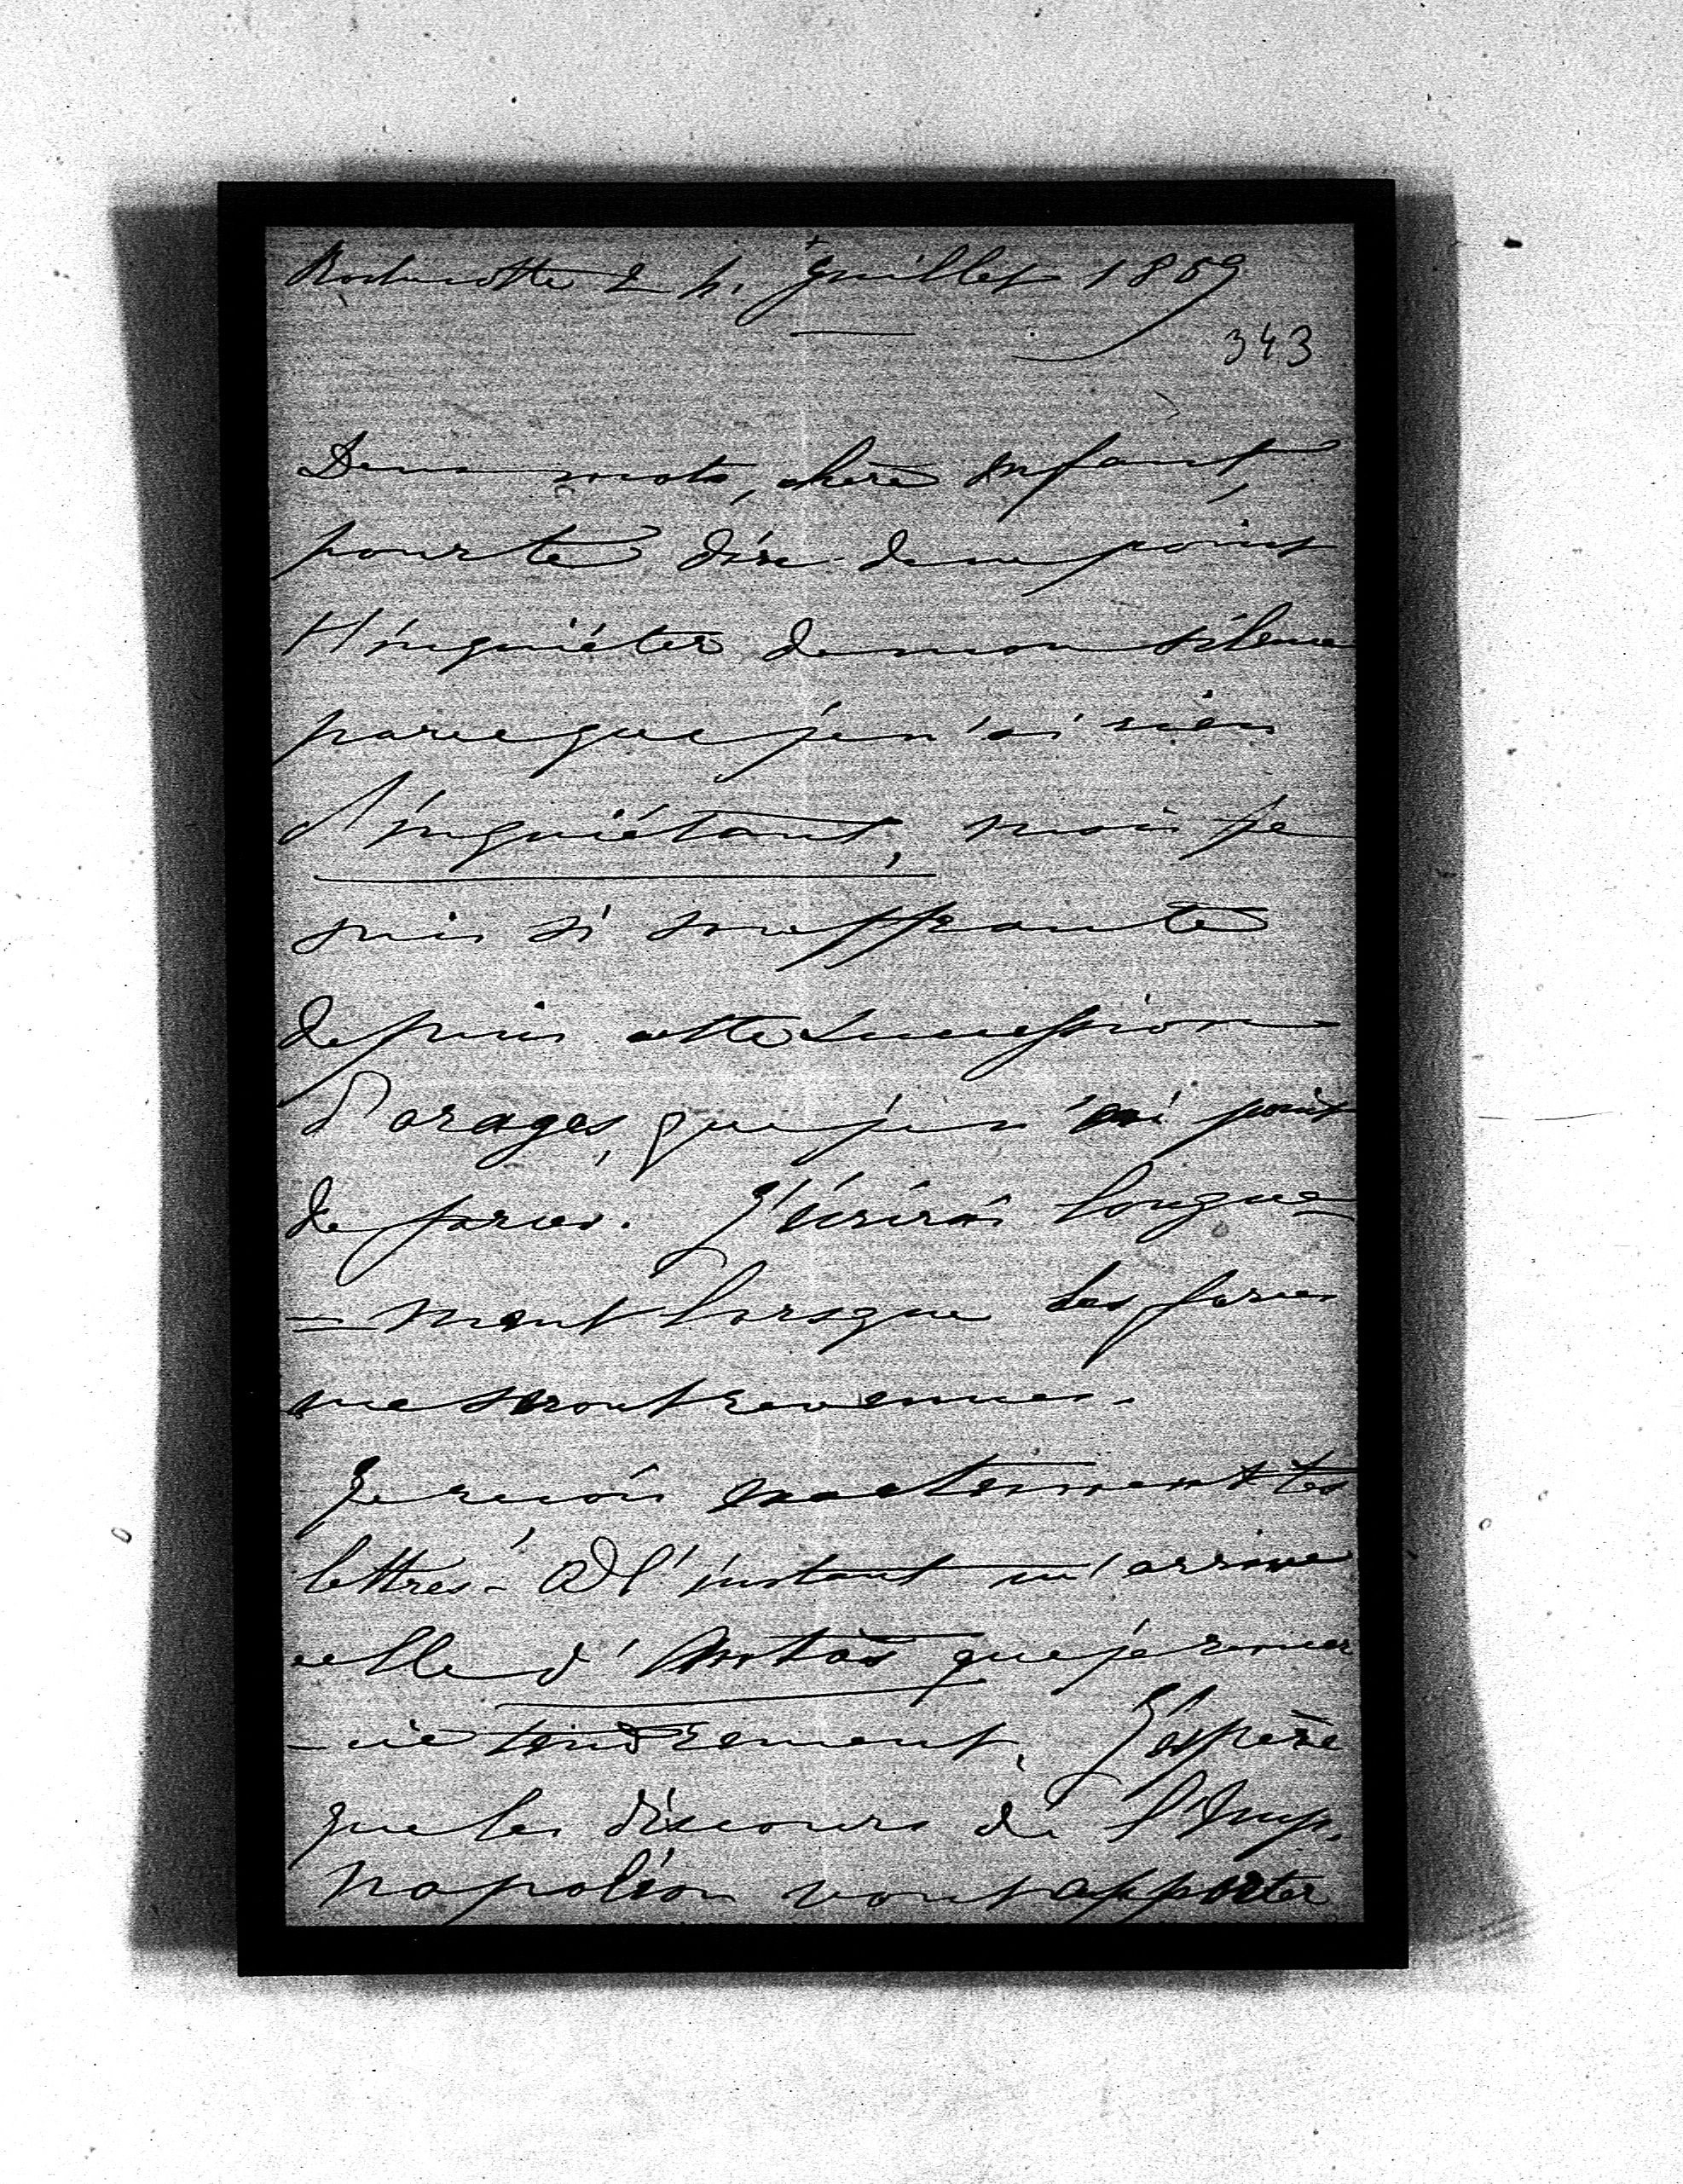 Rochecotte 2 h. Juillet 1869
343
Deux mots, chère enfant,
pour te dire de ne point
t'inquiéter de mon silence
parceque je n'ai rien
d'inquiétant, mais je
suis si souffrante
depuis cette succession
d'orages, que je n'ai point
de forces. J'écrirai longue
= ment lorsque les forces
me seront revenues.
Je reçois exactement tes
lettres. A l'instant m'arrive
celle d' que je remer
-cie tendrement. J'espère
que les discours de l'Emp.
Napoléon vont apporter